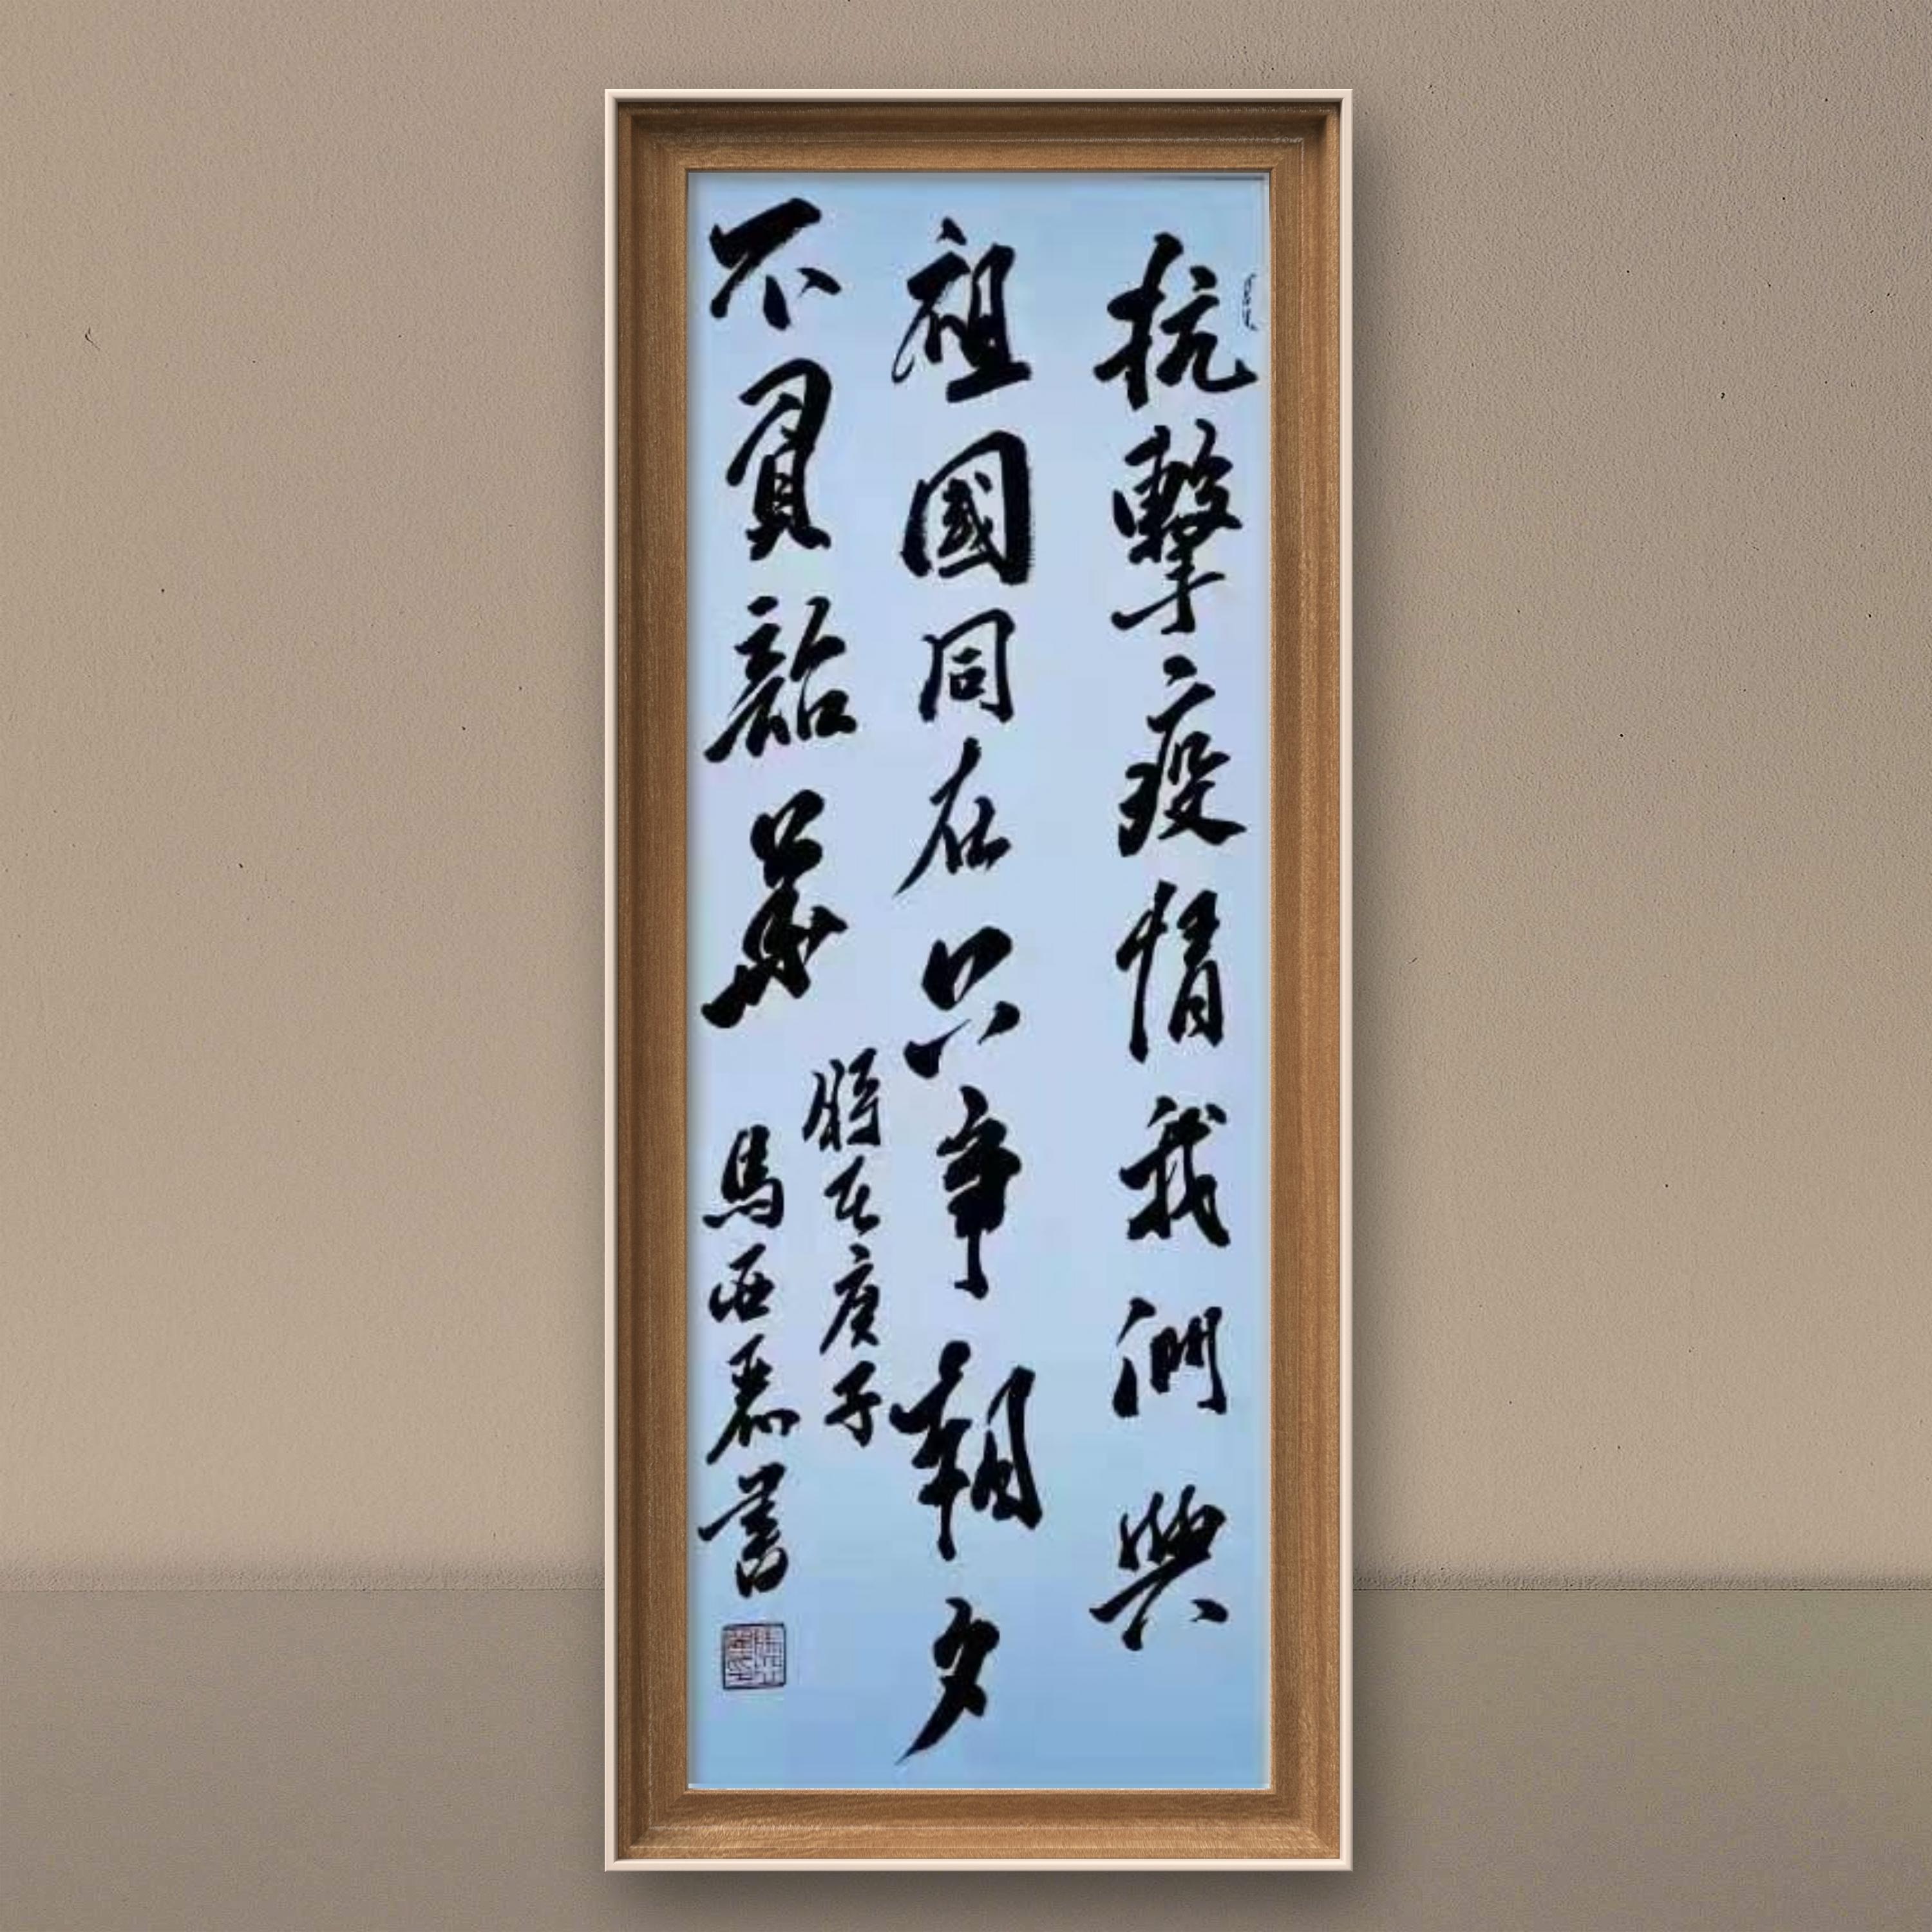 抗擊疫情我們與
祖國同在只争朝夕
不負韶華
時在庚子
馬西泰書